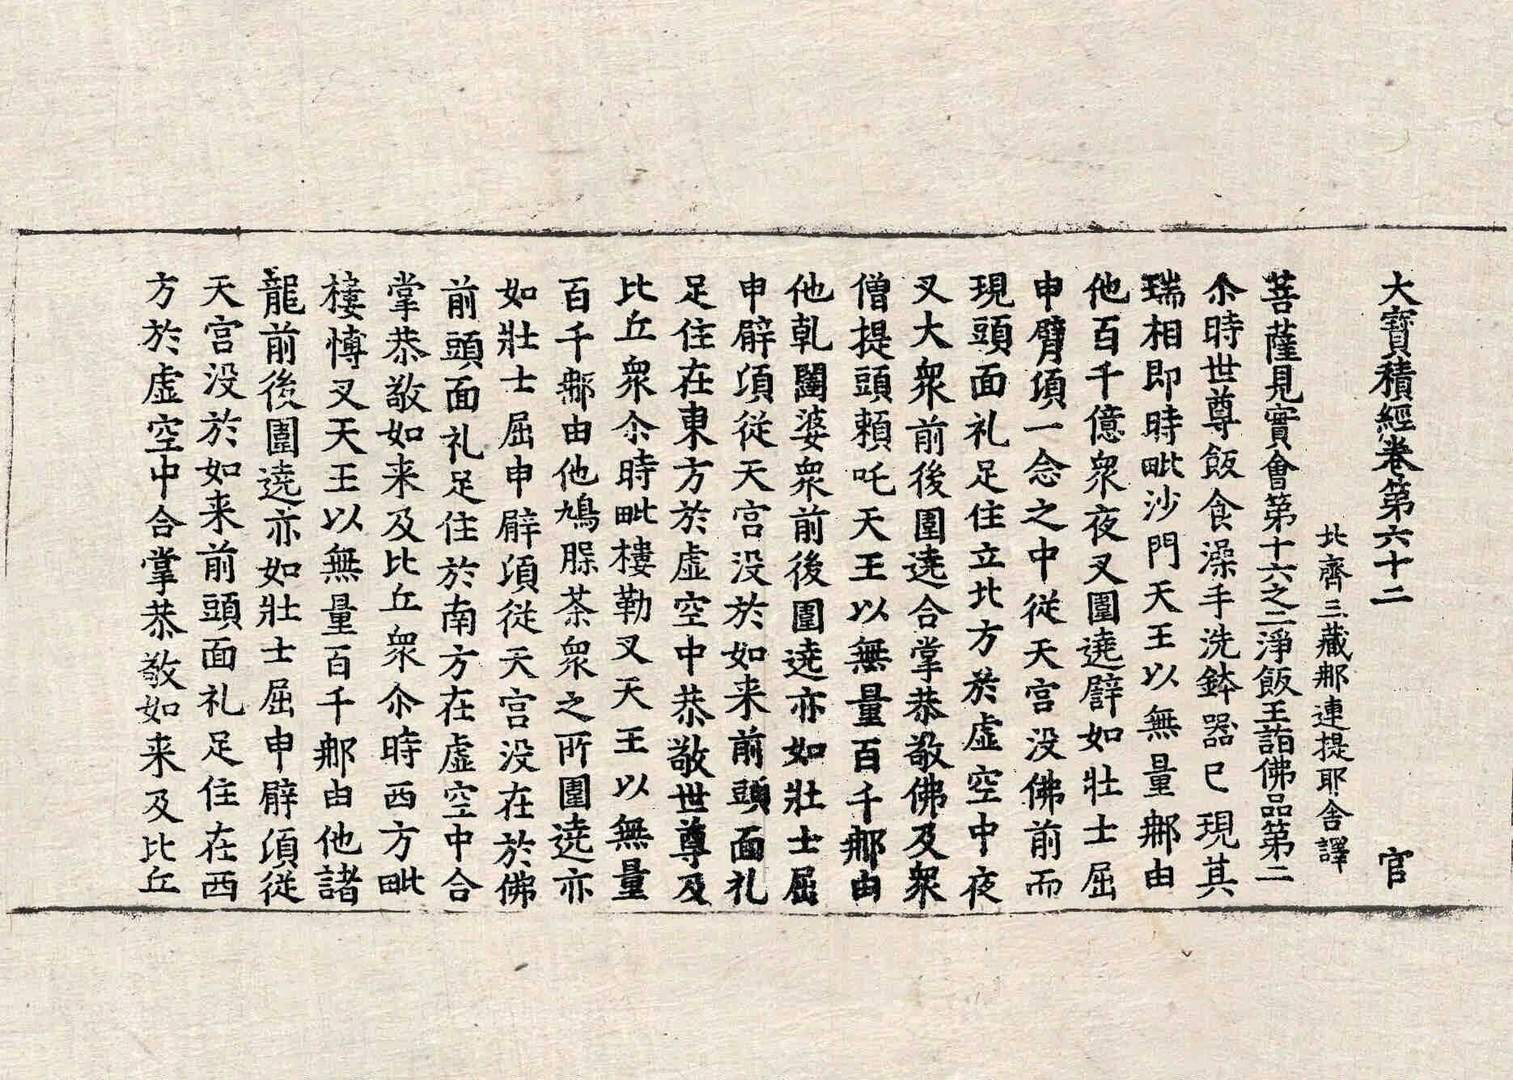 大寶積經卷第六十二　官
北齊三藏那連提耶舍譯
菩薩見實會第十六之二淨飯王詣佛品第二
尒時世尊飯食澡手洗鉢器已現其
瑞相即時毗沙門天王以無量那由
他百千億衆夜叉圍遶譬如壯士屈
申臂項一念之中從天宮没佛前而
現頭面礼足住立北方於虛空中夜
叉大衆前後圍遶合掌恭敬佛及衆
僧提頭賴吒天王以無量百千那由
他乹闥婆衆前後圍遶亦如壯士屈
申臂項從天宮没於如来前頭面礼
足住在東方於虛空中恭敬世尊及
比丘衆尒時毗樓勒叉天王以無量
百千那由他鳩腺茶衆之所圍遶亦
如壯士屈申臂項從天宮没在於佛
前頭面礼足住於南方在虛空中合
掌恭敬如来及比丘衆尒時西方毗
樓愽叉天王以無量百千那由他諸
龍前後圍遶亦如壯士屈申臂項從
天宮没於如来前頭面礼足住在西
方於虛空中合掌恭敬如来及比丘